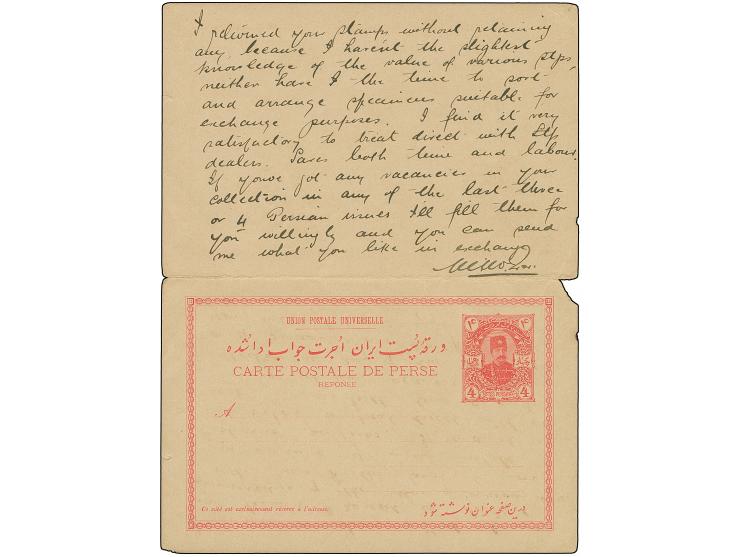 I returned your stamps without retaining
any, because I haven't the slightest
knowledge of the value of various stps,
neither have I the time to sort
and arrange specimens suitable for
exchange purposes. I find it very
satisfactory to treat direct with Stp
dealers. Saves both time and labour.
If you've got any vacancies in your
collection in any of the last three
or 4 Persian issues I'll fill them for
you willingly and you can send
me what you like in exchange
UNION POSTALE UNIVERSELLE
ورقه پست ایران اجرت جواب ادا شده
CARTE POSTALE DE PERSE
REPONSE
A
۴ ۴
4 4
Ce côté est exclusivement réservé à l'adresse.
درین صفحه عنوان نوشته شود